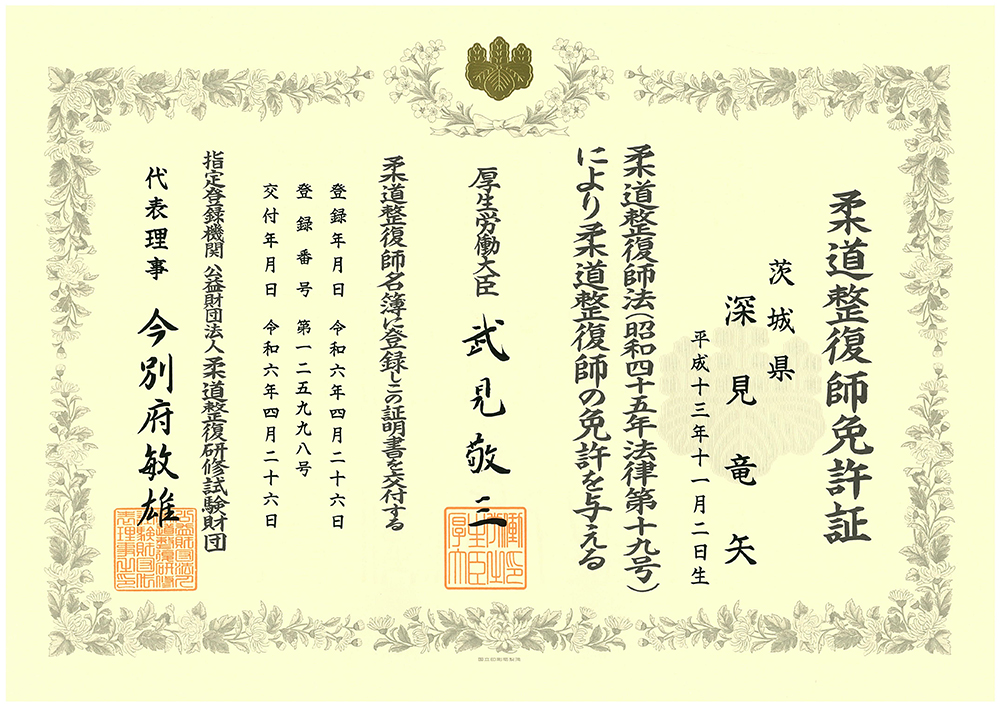 柔道整復師免許証
茨城県
深見竜矢
平成十三年十一月二日生
柔道整復師法(昭和四十五年法律第十九号)
により柔道整復師の免許を与える
厚生労働大臣 武見敬三
柔道整復師名簿に登録しこの証明書を交付する
登録年月日 令和六年四月二十六日
登録番号 第一二五九九八号
交付年月日 令和六年四月二十六日
指定登録機関 公益財団法人柔道整復研修試験財団
代表理事 今別府敏雄